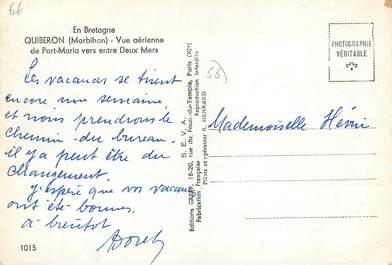 66
En Bretagne
QUIBERON (Morbihan) - Vue aérienne
de Port-Maria vers entre Deux Mers
Les vacances se tirent
encore une semaine
et nous prendrons le
chemin - du bureau -
il y a peut être du
changement.
j'espère que vos vacances
ont été bonnes.
à bientôt
1015
S. E. V. A.
Editions GREFF, 18-20, rue du Faub.-du-Temple, Paris (XIe)
Fabrication Française Reproduction Interdite
Pilote et opérateur R. HENRARD
PHOTOGRAPHIE
VÉRITABLE
(56)
Mademoiselle